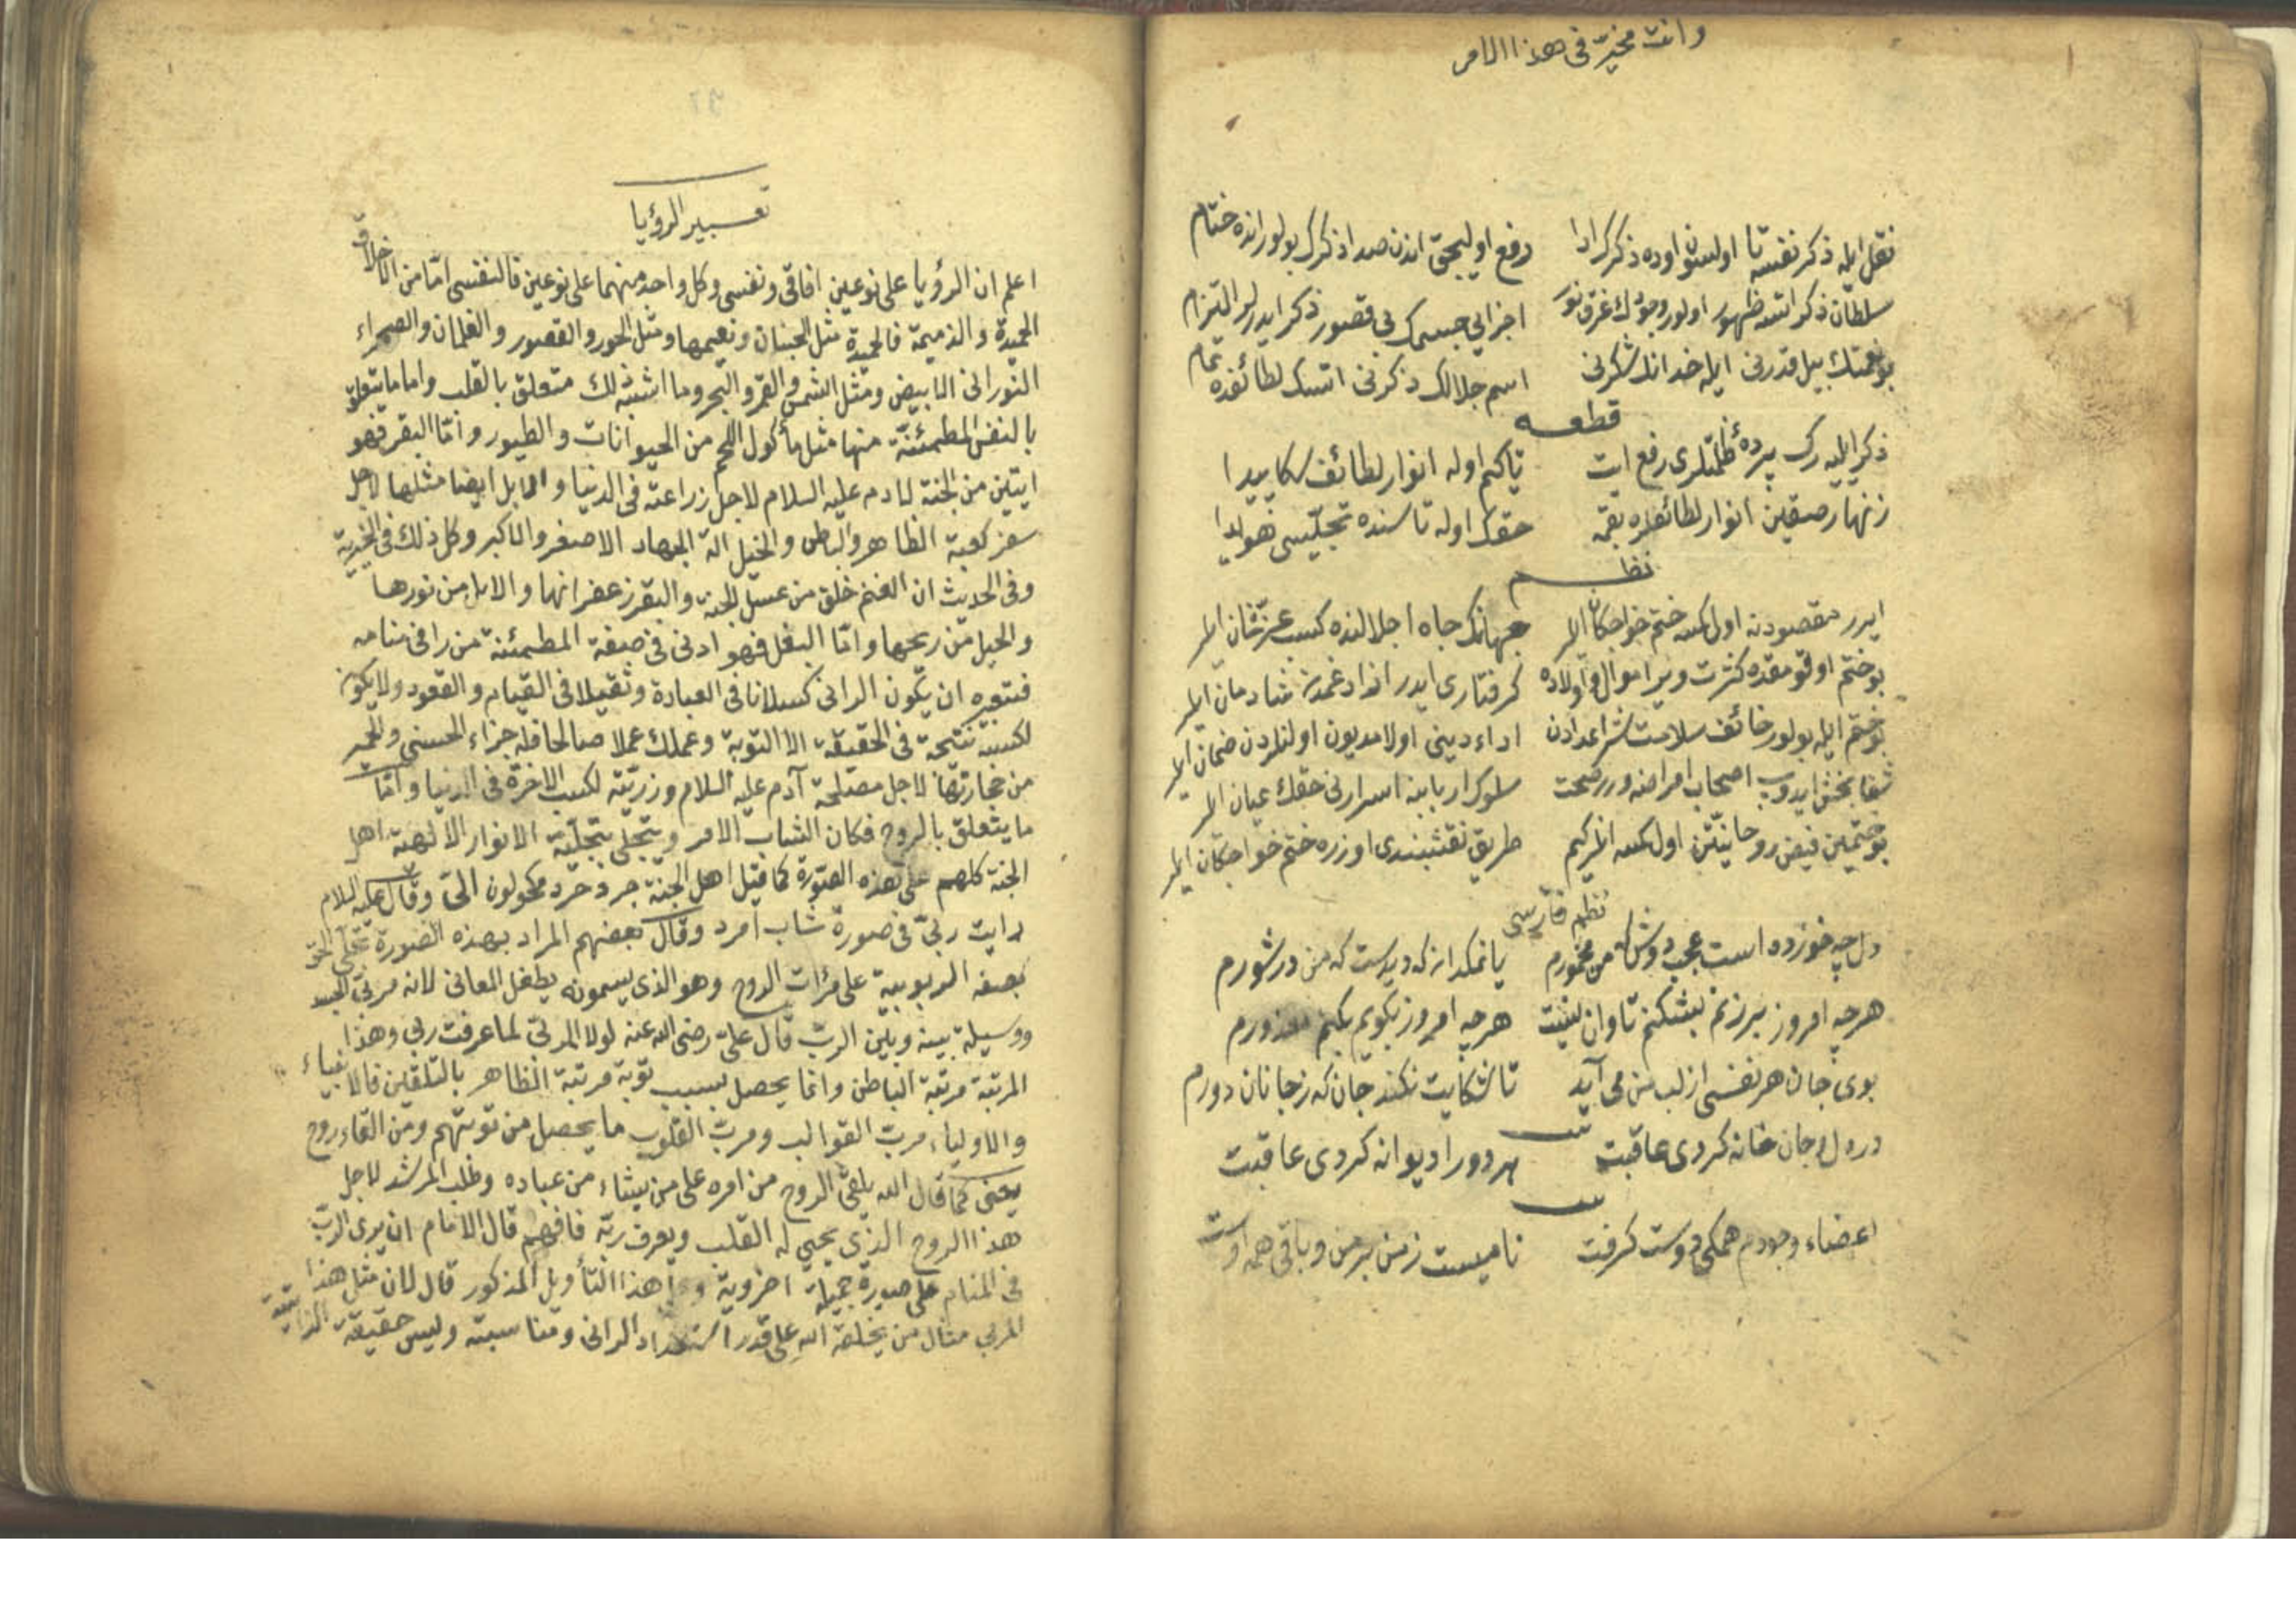 وانت مخير فى هذا الامر
نقل ايله ذكر نفسه تا اولسون اوده ذكرك ادا رفع اوليجق اندن صدا ذكرك بولور انده ختام
سلطان ذكر اتسه ظهور اولور وجودك غرق نور اجزاى جسمك بى قصور ذكر ايدرلر التزام
بو نعمتك بيل قدرنى ايله خدانك شكرنى اسم جلالك ذكرنى اتسك لطائفده تمام
قطعه
ذكر ايليه رك پردهٔ ظلمتلرى رفع ات تاكم اوله انوار لطائف سكا پيدا
زنهار صقين انوار لطائفلره بقمه حقك اوله تا سنده تجليسى هويدا
نظم
ايرر مقصودنه اول كمسه ختم خواجكان ايلر جهانك جاه اجلالنده كسب عز شان ايلر
بو ختم اوقومقده كثرت ويرر اموال و اولاده كرفتارى ايدر ازاد غمدن شادمان ايلر
بو ختم ايله بولور خائف سلامت شر اعدادن اداء دينى اولا مديون اولنلردن ضمان ايلر
شفا بخش ايدوب اصحاب امراضه ويرر صحت سلوك اربابنه اسرارنى حقك عيان ايلر
بو ختمين فيض روحانيتن اول كمسه اكلر كيم طريق نقشبندى اوزره ختم خواجكان ايلر
نظم فارسى
دل چه خورده است عجب دوش كه من مخمورم يا نمكدان كه ديدست كه من در شورم
هرچه امروز بريزم بشكنم تاوان نيست هرچه امروز بكويم بكنم معذورم
بوى جان هر نفسى از لب من مى آيد تا شكايت نكند جان كه ز جانان دورم
در دل و جان خانه كردى عاقبت هر دو را ديوانه كردى عاقبت
اعضاء وجودم همكى دوست كرفت ناميست ز من بر من و باقى همه اوست
تعبير الرؤيا
اعلم ان الرؤيا على نوعين افاقى ونفسى وكل واحد منهما على نوعين فالنفسى اما من الاخلاق
الحميدة والذميمة فالحميدة مثل الجنان ونعيمها ومثل الحور والقصور والغلمان والصحراء
النورانى الابيض ومثل الشمس والقمر والنجوم وما اشبه ذلك متعلق بالقلب واما ما يتعلق
بالنفس المطمئنة منها مثل مأكول اللحم من الحيوانات والطيور واما البقر فهو
ايتين من الجنة لادم عليه السلام لاجل زراعته فى الدنيا والابل ايضا مثلها لاجل
سفر كعبة الظاهر والباطن والخيل الة الجهاد الاصغر والاكبر وكل ذلك فى الخيرية
وفى الحديث ان الغنم خلق من عسل الجنة والبقر زعفرانها والابل من نورها
والخيل من ريحها واما البغل فهو ادنى فى صفة المطمئنة من راٰ فى منامه
فتعبيره ان يكون الرائى كسلانا فى العبادة وثقيلا فى القيام والقعود ولا يكون
لكسبه نتيجة فى الحقيقة الا التوبة وعملك عملا صالحا فله جزاء الحسنى والحمير
من حجارتها لاجل مصلحة آدم عليه السلام وزريته لكسب الاخرة فى الدنيا واما
ما يتعلق بالروح فكان الشاب الامرد ويتجلى بتجلية الانوار الالهية اهل
الجنة كلهم على هذه الصورة كما قيل اهل الجنة جرد مرد مكحولون الخ وقال عليه السلام
رايت ربى فى صورة شاب امرد وقال بعضهم المراد بهذه الصورة تجلى الحق
بصفة الربوبية على مرات الروح وهو الذى يسمونه بطفل المعانى لانه مربى الجسد
ووسيلة بينه وبين الرب قال على رضى الله عنه لولا المربى لما عرفت ربى وهذا
المرتبة مرتبة الباطن وانما يحصل بسبب توبة مرتبة الظاهر بالتلقين فالانبياء
والاولياء مرب القوالب ومرب القلوب ما يحصل من توبتهم ومن القاء روح
يعنى كما قال الله يلقى الروح من امره على من يشاء من عباده وطلب المرشد لاجل
هذا الروح الذى يحيى له القلب ويعرف ربه فافهم قال الامام ان يرى الرب
فى المنام على صورة جميلة اخروية هذا التأويل المذكور قال لان مثل هذا
المربى مثال من يخلقه الله على قدر استعداد الرائى ومناسبته وليس حقيقة الذاتية